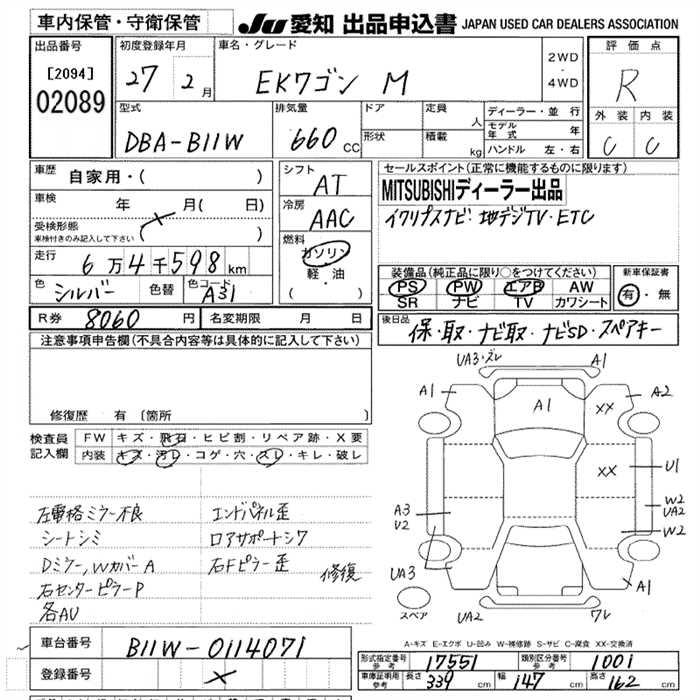 車内保管・守衛保管
JU 愛知 出品申込書 JAPAN USED CAR DEALERS ASSOCIATION
出品番号
[2094]
02089
初度登録年月
27 2月
車名・グレード
EKワゴン M
2WD
・
4WD
評価点
R
外装 内装
C C
型式
DBA-B11W
排気量
660 CC
ドア
形状
定員
人
積載
kg
ディーラー・並行
モデル年式 年
ハンドル 左・右
車歴
自家用・( )
車検
年 月( 日)
受検形態
車検付きのみ記入して下さい
走行
6万4千598km
色
シルバー
色替
色コード
A31
シフト
AT
冷房
AAC
燃料
ガソリン
軽・油
( )
セールスポイント(正常に機能するものに限ります)
MITSUBISHIディーラー出品
イクリプスナビ・地デジTV・ETC
装備品(純正品に限り○をつけてください)
PS PW エアB AW
SR ナビ TV カワシート
新車保証書
有・無
R券 8060円
名変期限 月 日
後日品
保・取・ナビ取・ナビSD・スペアキー
注意事項申告欄(不具合内容等は具体的に記入して下さい)
修復歴 有 [箇所 ]
検査員記入欄
FW キズ・飛石・ヒビ割・リペア跡・X要
内装 キズ・汚レ・コゲ・穴・スレ・キレ・破レ
左電格ミラー不良
シートシミ
Dミラー,WカバーA
右センターピラーP
各AU
エンドパネル歪
ロアサポートシワ
右Fピラー歪
修復
UA3・ズレ
A1
A1
A1
XX
A2
XX
U1
W2
UA2
W2
A3
U2
UA3
A1
スペア
UA2
ワレ
A-キズ E-エクボ U-凹み W-補修跡 S-サビ C-腐食 XX-交換済
車台番号
B11W-0114071
登録番号
形式指定番号
参考
17551
類別区分番号
参考
1001
車庫証明用
参考
長さ 339cm
幅 147cm
高さ 162cm